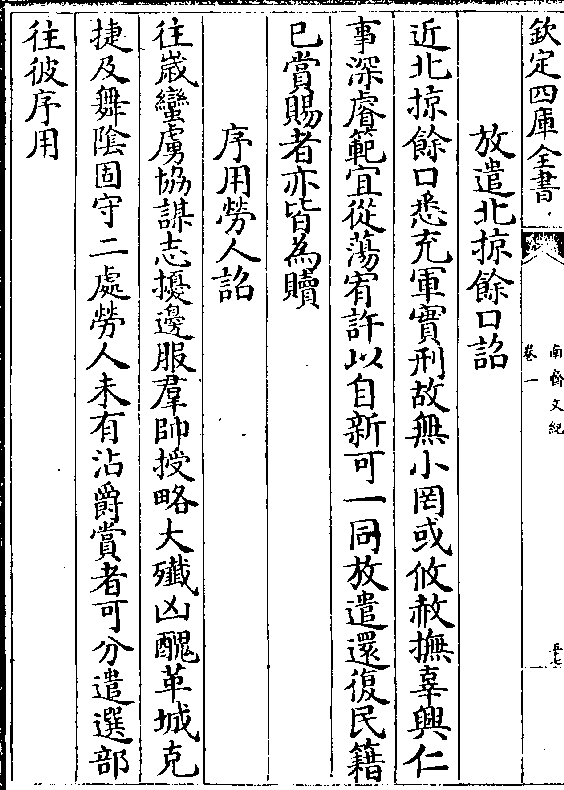 欽定四庫全書
南齊文紀
卷一
放遣北掠餘口詔
近北掠餘口悉充軍實刑故無小罔或攸赦撫辜興仁
事深睿範宜從蕩宥許以自新可一同放遣還復民籍
已賞賜者亦皆為贖
序用勞人詔
往歲蠻虜協謀志擾邊服羣帥授略大殲凶醜革城克
捷及舞陰固守二處勞人未有沾爵賞者可分遣選部
往彼序用